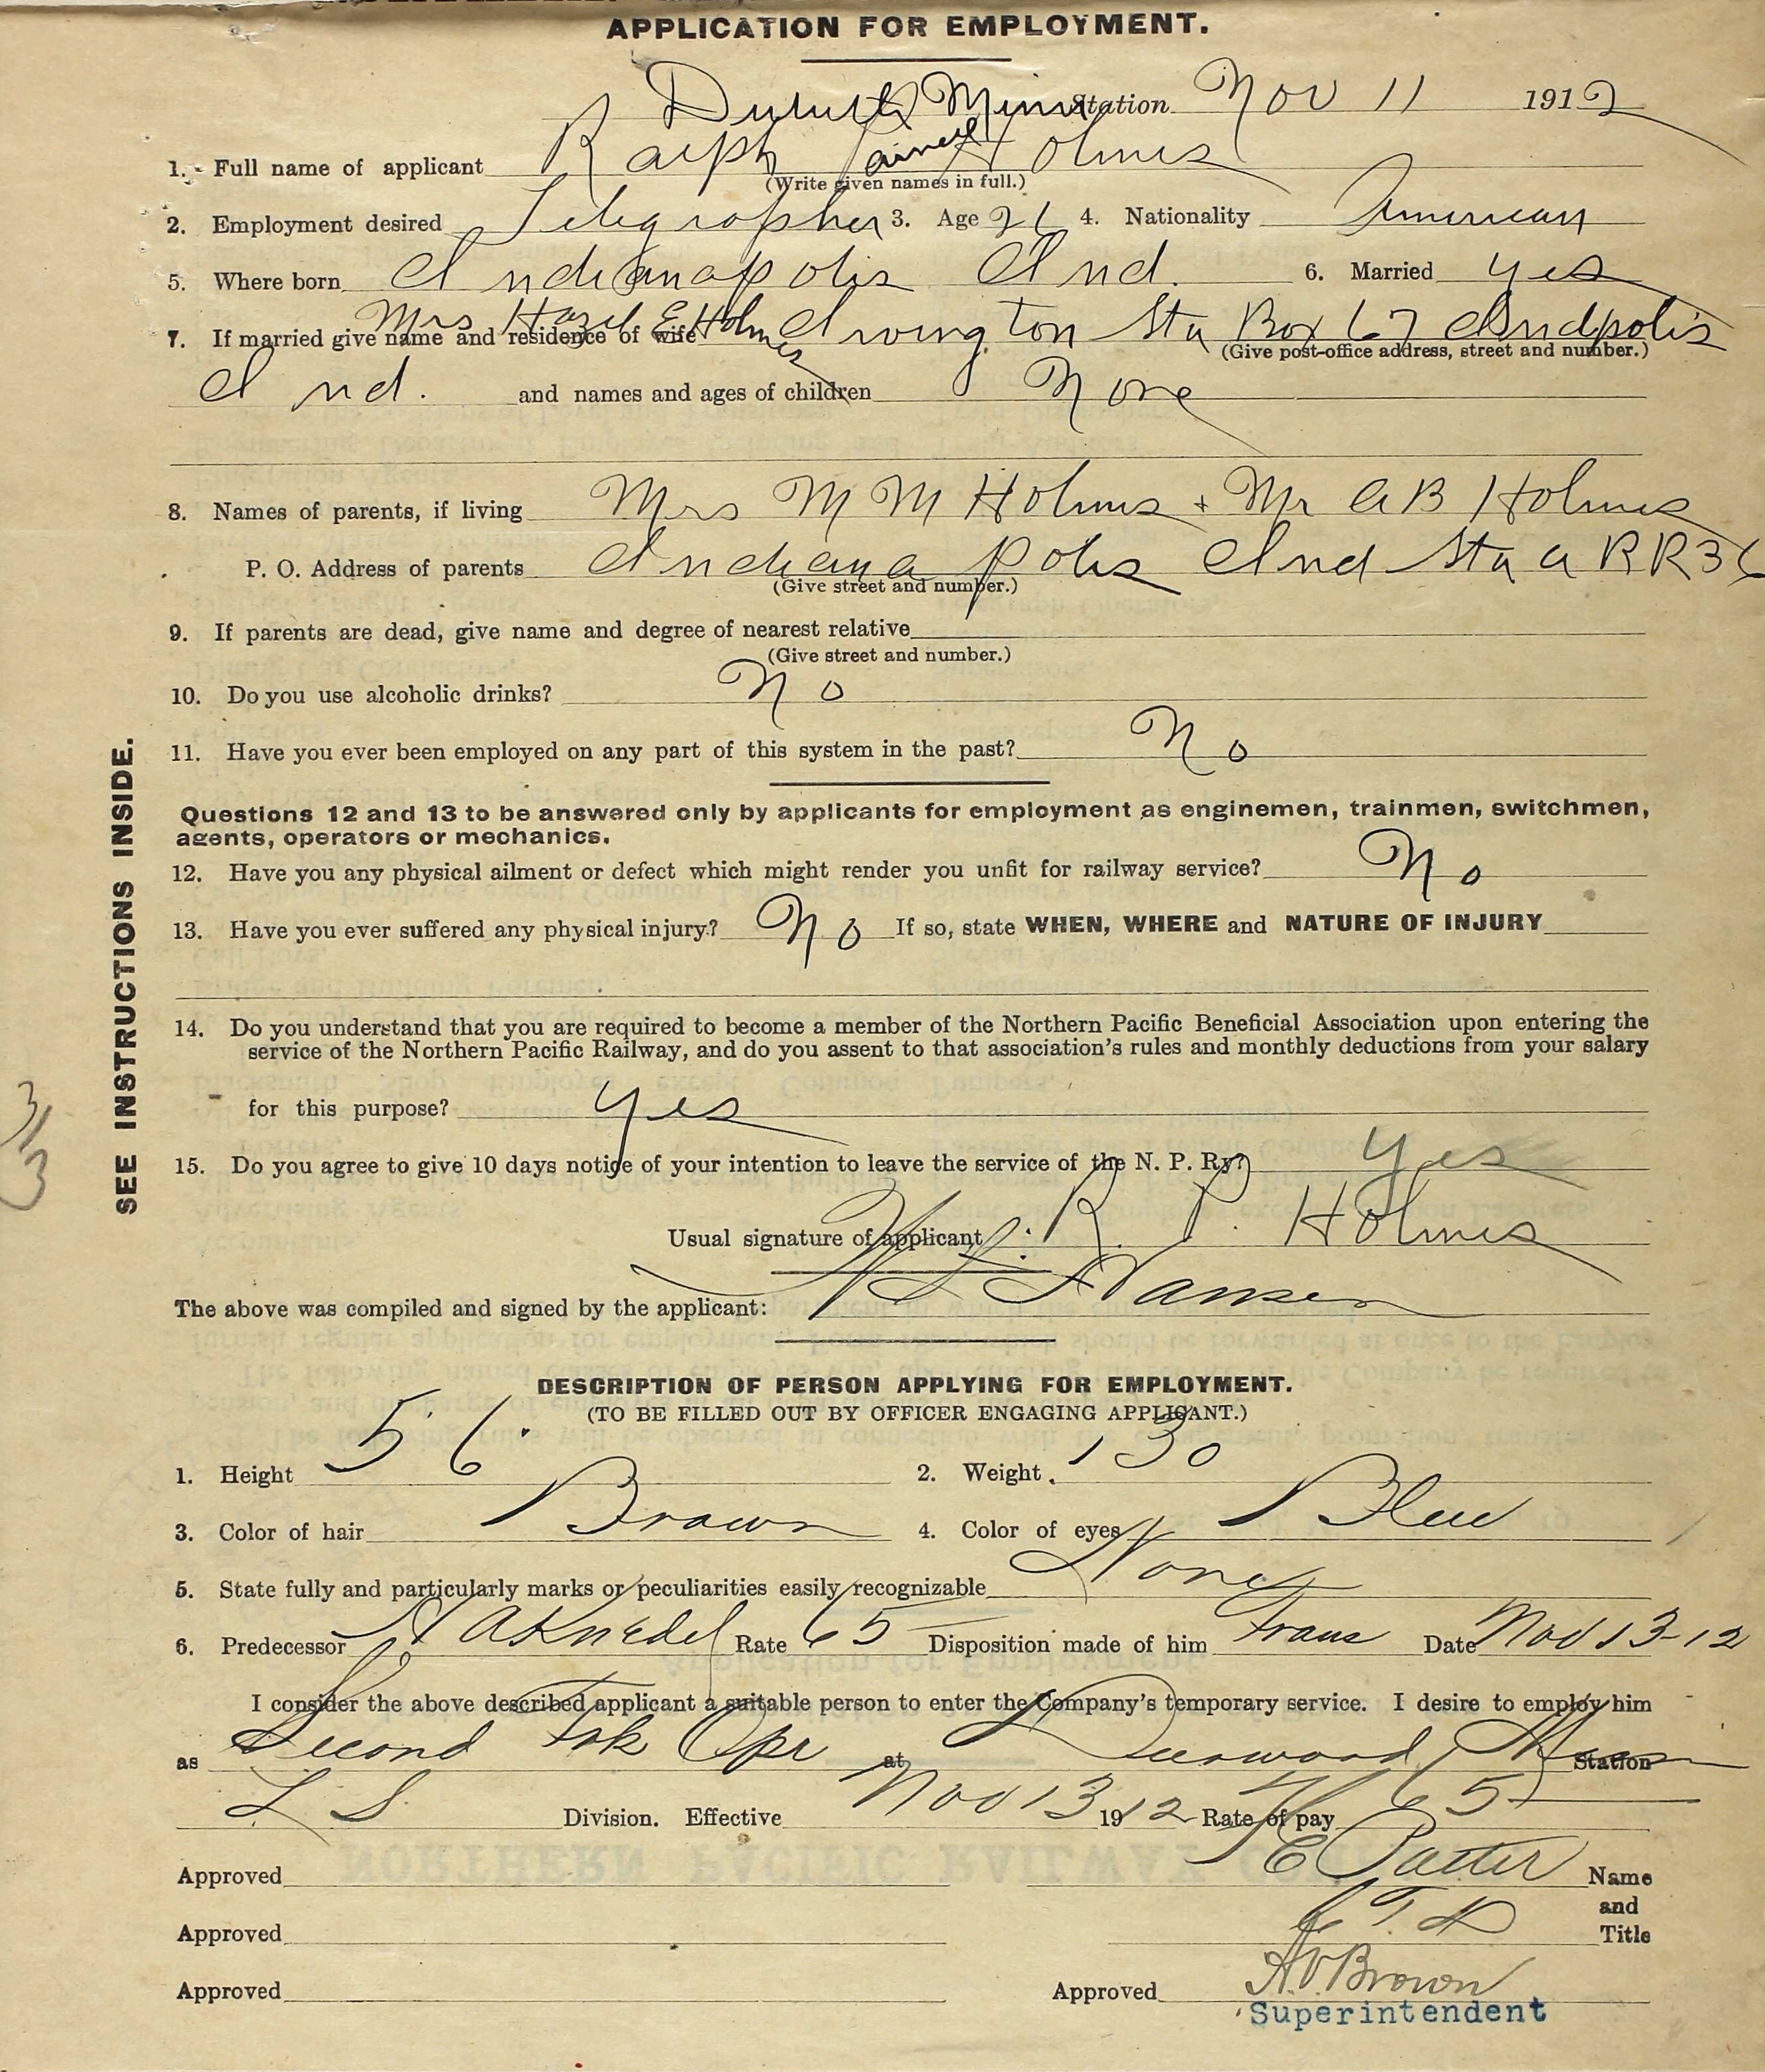 APPLICATION FOR EMPLOYMENT.
Duluth Minn Station Nov 11 1912
1. Full name of applicant Ralph Holmes
(Write given names in full.)
2. Employment desired Telegrapher 3. Age 21 4. Nationality American
5. Where born Indianapolis Ind. 6. Married yes
7. If married give name and residence of wife Mrs Hazel E Holmes Irvington Sta Box 67 Indpolis
(Give post-office address, street and number.)
Ind. and names and ages of children None
8. Names of parents, if living Mrs M M Holmes + Mr A B Holmes
P. O. Address of parents Indianapolis Ind Sta A RR 36
(Give street and number.)
9. If parents are dead, give name and degree of nearest relative
(Give street and number.)
10. Do you use alcoholic drinks? No
11. Have you ever been employed on any part of this system in the past? No
Questions 12 and 13 to be answered only by applicants for employment as enginemen, trainmen, switchmen,
agents, operators or mechanics.
12. Have you any physical ailment or defect which might render you unfit for railway service? No
13. Have you ever suffered any physical injury? No If so, state WHEN, WHERE and NATURE OF INJURY
14. Do you understand that you are required to become a member of the Northern Pacific Beneficial Association upon entering the
service of the Northern Pacific Railway, and do you assent to that association's rules and monthly deductions from your salary
for this purpose? yes
15. Do you agree to give 10 days notice of your intention to leave the service of the N. P. Ry? yes
Usual signature of applicant R. P. Holmes
The above was compiled and signed by the applicant: Hansen
SEE INSTRUCTIONS INSIDE.
3/3
DESCRIPTION OF PERSON APPLYING FOR EMPLOYMENT.
(TO BE FILLED OUT BY OFFICER ENGAGING APPLICANT.)
1. Height 5' 6" 2. Weight 130
3. Color of hair Brown 4. Color of eyes Blue
5. State fully and particularly marks or peculiarities easily recognizable None
6. Predecessor Rate 65 Disposition made of him Trans Date Nov 13-12
I consider the above described applicant a suitable person to enter the Company's temporary service. I desire to employ him
as Second Trk Opr at Deerwood, Minn Station
L S Division. Effective Nov 13 1912 Rate of pay 65
Approved Name
and
Approved Title
Approved Approved A.V. Brown
Superintendent